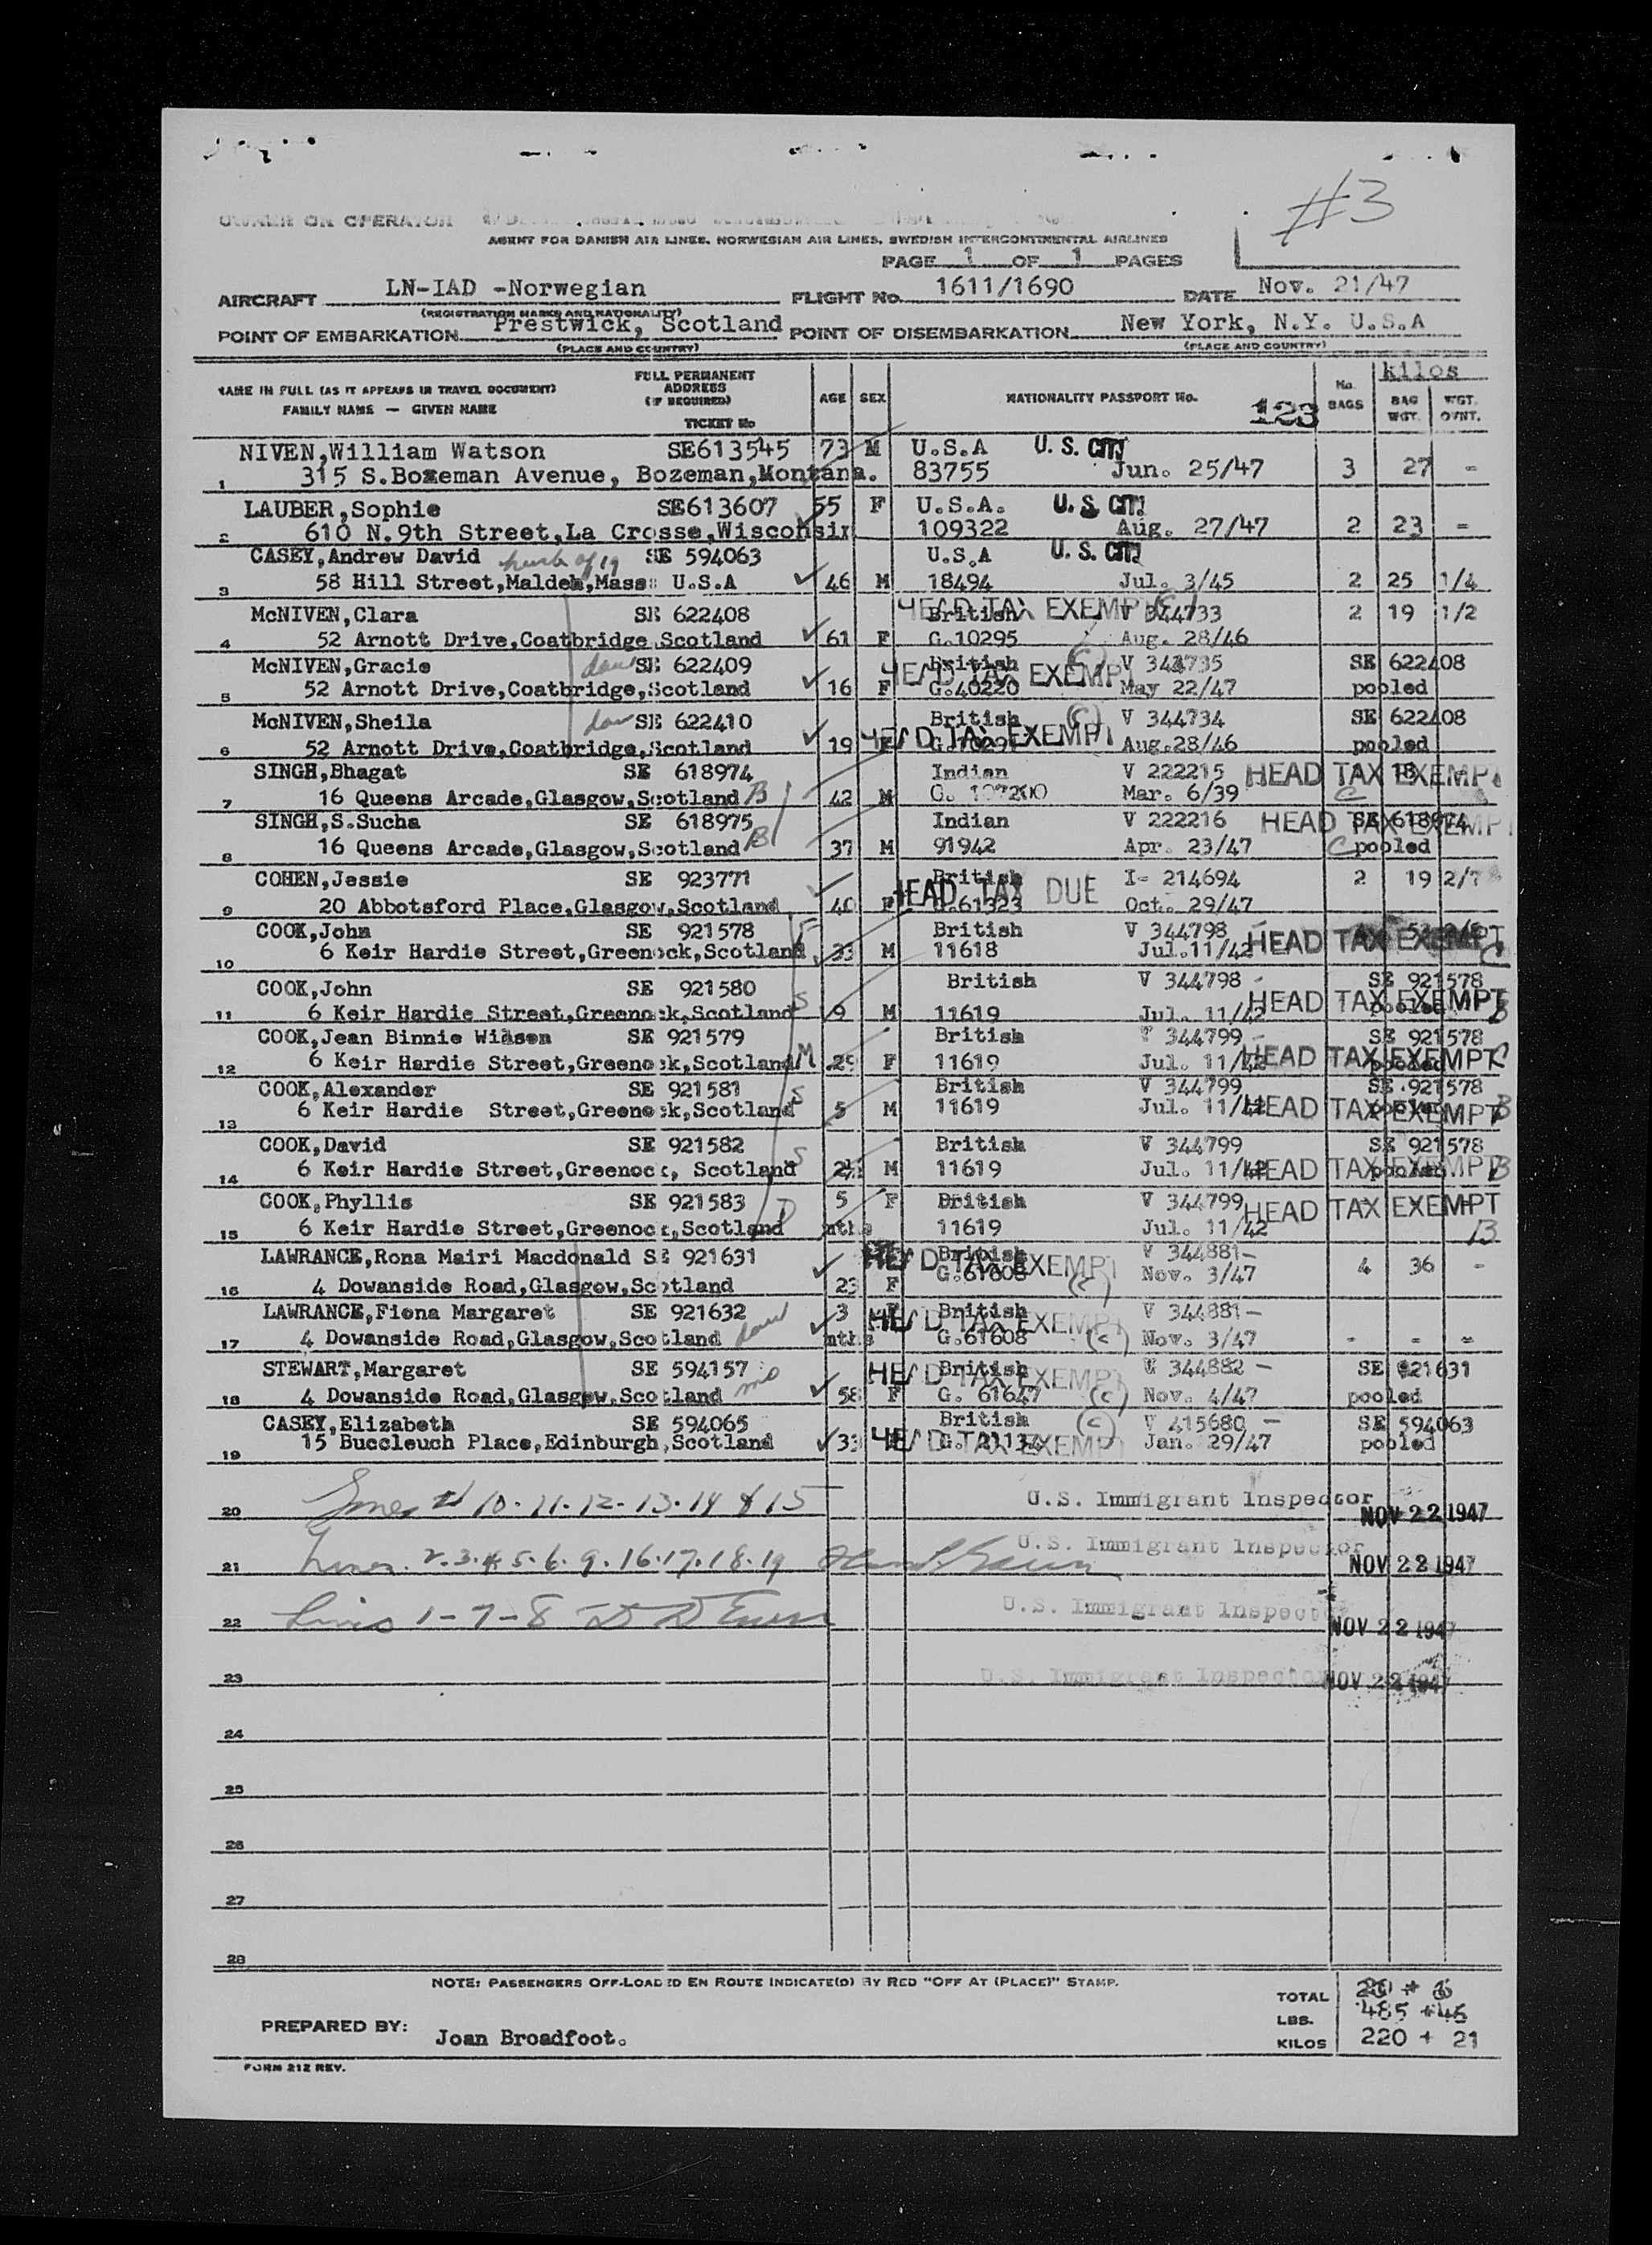 #3
OWNER OR OPERATOR
AGENT FOR DANISH AIR LINES, NORWEGIAN AIR LINES, SWEDISH INTERCONTINENTAL AIRLINES
PAGE 1 OF 1 PAGES
AIRCRAFT LN-IAD -Norwegian FLIGHT No. 1611/1690 DATE Nov. 21/47
(REGISTRATION MARKS AND NATIONALITY)
POINT OF EMBARKATION Prestwick, Scotland POINT OF DISEMBARKATION New York, N.Y. U.S.A
(PLACE AND COUNTRY) (PLACE AND COUNTRY)
NAME IN FULL (AS IT APPEARS IN TRAVEL DOCUMENT) FULL PERMANENT ADDRESS (IF REQUIRED) AGE SEX NATIONALITY PASSPORT No. No. BAGS kilos BAG WGT. WGT. OVNT.
FAMILY NAME — GIVEN NAME TICKET No 123
NIVEN,William Watson SE613545 73 M U.S.A U.S. CITI
1 315 S.Bozeman Avenue, Bozeman,Montana. 83755 Jun. 25/47 3 27 -
LAUBER,Sophie SE613607 55 F U.S.A. U.S. CITI
2 610 N.9th Street,La Crosse,Wisconsin 109322 Aug. 27/47 2 23 -
CASEY,Andrew David husb of 19 SE 594063 U.S.A U.S. CITI
3 58 Hill Street,Malden,Mass: U.S.A 46 M 18494 Jul. 3/45 2 25 1/4
McNIVEN,Clara SE 622408 British HEAD TAX EXEMPT V 344733 2 19 1/2
4 52 Arnott Drive,Coatbridge,Scotland 61 F G.10295 Aug. 28/46
McNIVEN,Gracie dau SE 622409 British (C) V 344735 SE 622408
5 52 Arnott Drive,Coatbridge,Scotland 16 F G.40220 HEAD TAX EXEMPT May 22/47 pooled
McNIVEN,Sheila dau SE 622410 British (C) V 344734 SE 622408
6 52 Arnott Drive,Coatbridge,Scotland 19 F HEAD TAX EXEMPT Aug.28/46 pooled
SINGH,Bhagat SE 618974 Indian V 222215 HEAD TAX EXEMPT 18
7 16 Queens Arcade,Glasgow,Scotland B 42 M Mar. 6/39 C
SINGH,S.Sucha SE 618975 Indian V 222216 HEAD TAX EXEMPT SE 618974
8 16 Queens Arcade,Glasgow,Scotland B 37 M 91942 Apr. 23/47 C pooled
COHEN,Jessie SE 923771 British I- 214694 2 19 2/7
9 20 Abbotsford Place,Glasgow,Scotland 40 F G.61323 HEAD TAX DUE Oct. 29/47
COOK,John SE 921578 F British V 344798
10 6 Keir Hardie Street,Greenock,Scotland 33 M 11618 Jul.11/42 HEAD TAX EXEMPT C
COOK,John SE 921580 British V 344798 SE 921578
11 6 Keir Hardie Street,Greenock,Scotland S 9 M 11619 Jul. 11/42 HEAD TAX EXEMPT pooled B
COOK,Jean Binnie Wilson SE 921579 British V 344799 SE 921578
12 6 Keir Hardie Street,Greenock,Scotland M 29 F 11619 Jul. 11/42 HEAD TAX EXEMPT pooled C
COOK,Alexander SE 921581 British V 344799 SE 921578
13 6 Keir Hardie Street,Greenock,Scotland S 5 M 11619 Jul. 11/42 HEAD TAX EXEMPT pooled B
COOK,David SE 921582 British V 344799 SE 921578
14 6 Keir Hardie Street,Greenock, Scotland S 2½ M 11619 Jul. 11/42 HEAD TAX EXEMPT pooled B
COOK,Phyllis SE 921583 5 F British V 344799 HEAD TAX EXEMPT
15 6 Keir Hardie Street,Greenock,Scotland D mths 11619 Jul. 11/42 B
LAWRANCE,Rona Mairi Macdonald SE 921631 British HEAD TAX EXEMPT V 344881- 4 36 -
16 4 Dowanside Road,Glasgow,Scotland 23 F G.61608 (c) Nov. 3/47
LAWRANCE,Fiona Margaret SE 921632 3 F British HEAD TAX EXEMPT V 344881-
17 4 Dowanside Road,Glasgow,Scotland dau mths G.61608 (c) Nov. 3/47 - - -
STEWART,Margaret SE 594157 British HEAD TAX EXEMPT V 344882 - SE 921631
18 4 Dowanside Road,Glasgow,Scotland mo 58 F G. 61647 (c) Nov. 4/47 pooled
CASEY,Elizabeth SE 594065 British (c) V 415680 - SE 594063
19 15 Buccleuch Place,Edinburgh,Scotland 33 HEAD TAX EXEMPT Jan. 29/47 pooled
20 10-11-12-13-14 & 15 U.S. Immigrant Inspector NOV 22 1947
21 2.3.4.5.6.9.16.17.18.19 U.S. Immigrant Inspector NOV 22 1947
22 1-7-8 U.S. Immigrant Inspector NOV 22 1947
23 U.S. Immigrant Inspector NOV 22 1947
24
25
26
27
28
NOTE: PASSENGERS OFF-LOADED EN ROUTE INDICATE(D) BY RED "OFF AT (PLACE)" STAMP.
TOTAL
LBS. 485 +46
PREPARED BY: Joan Broadfoot. KILOS 220 + 21
FORM 212 REV.